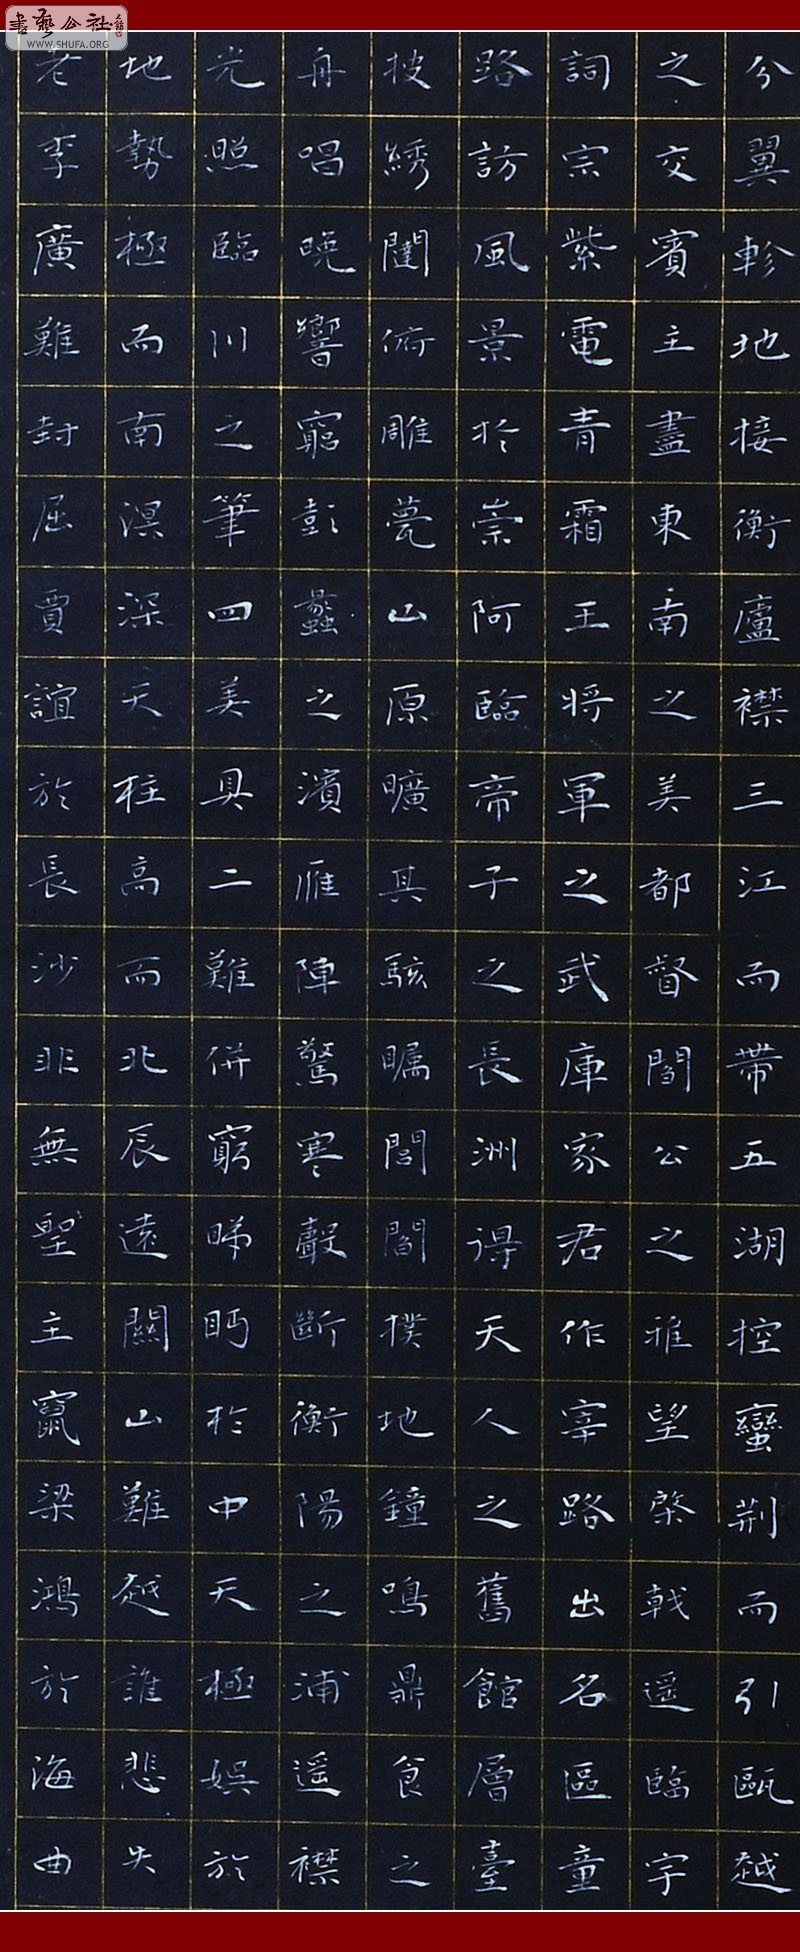 分翼軫地接衡廬襟三江而帶五湖控蠻荆而引甌越
之交賓主盡東南之美都督閻公之雅望棨戟遥臨宇
詞宗紫電青霜王將軍之武庫家君作宰路出名區童
路訪風景於崇阿臨帝子之長洲得天人之舊館層臺
披綉闥俯雕甍山原曠其駭矚閭閻撲地鐘鳴鼎食之
舟唱晚響窮彭蠡之濱雁陣驚寒聲斷衡陽之浦遥襟
光照臨川之筆四美具二難併窮睇眄於中天極娱於
地勢極而南溟深天柱高而北辰遠關山難越誰悲失
老李廣難封屈賈誼於長沙非無聖主竄梁鴻於海曲
書藝公社
WWW.SHUFA.ORG